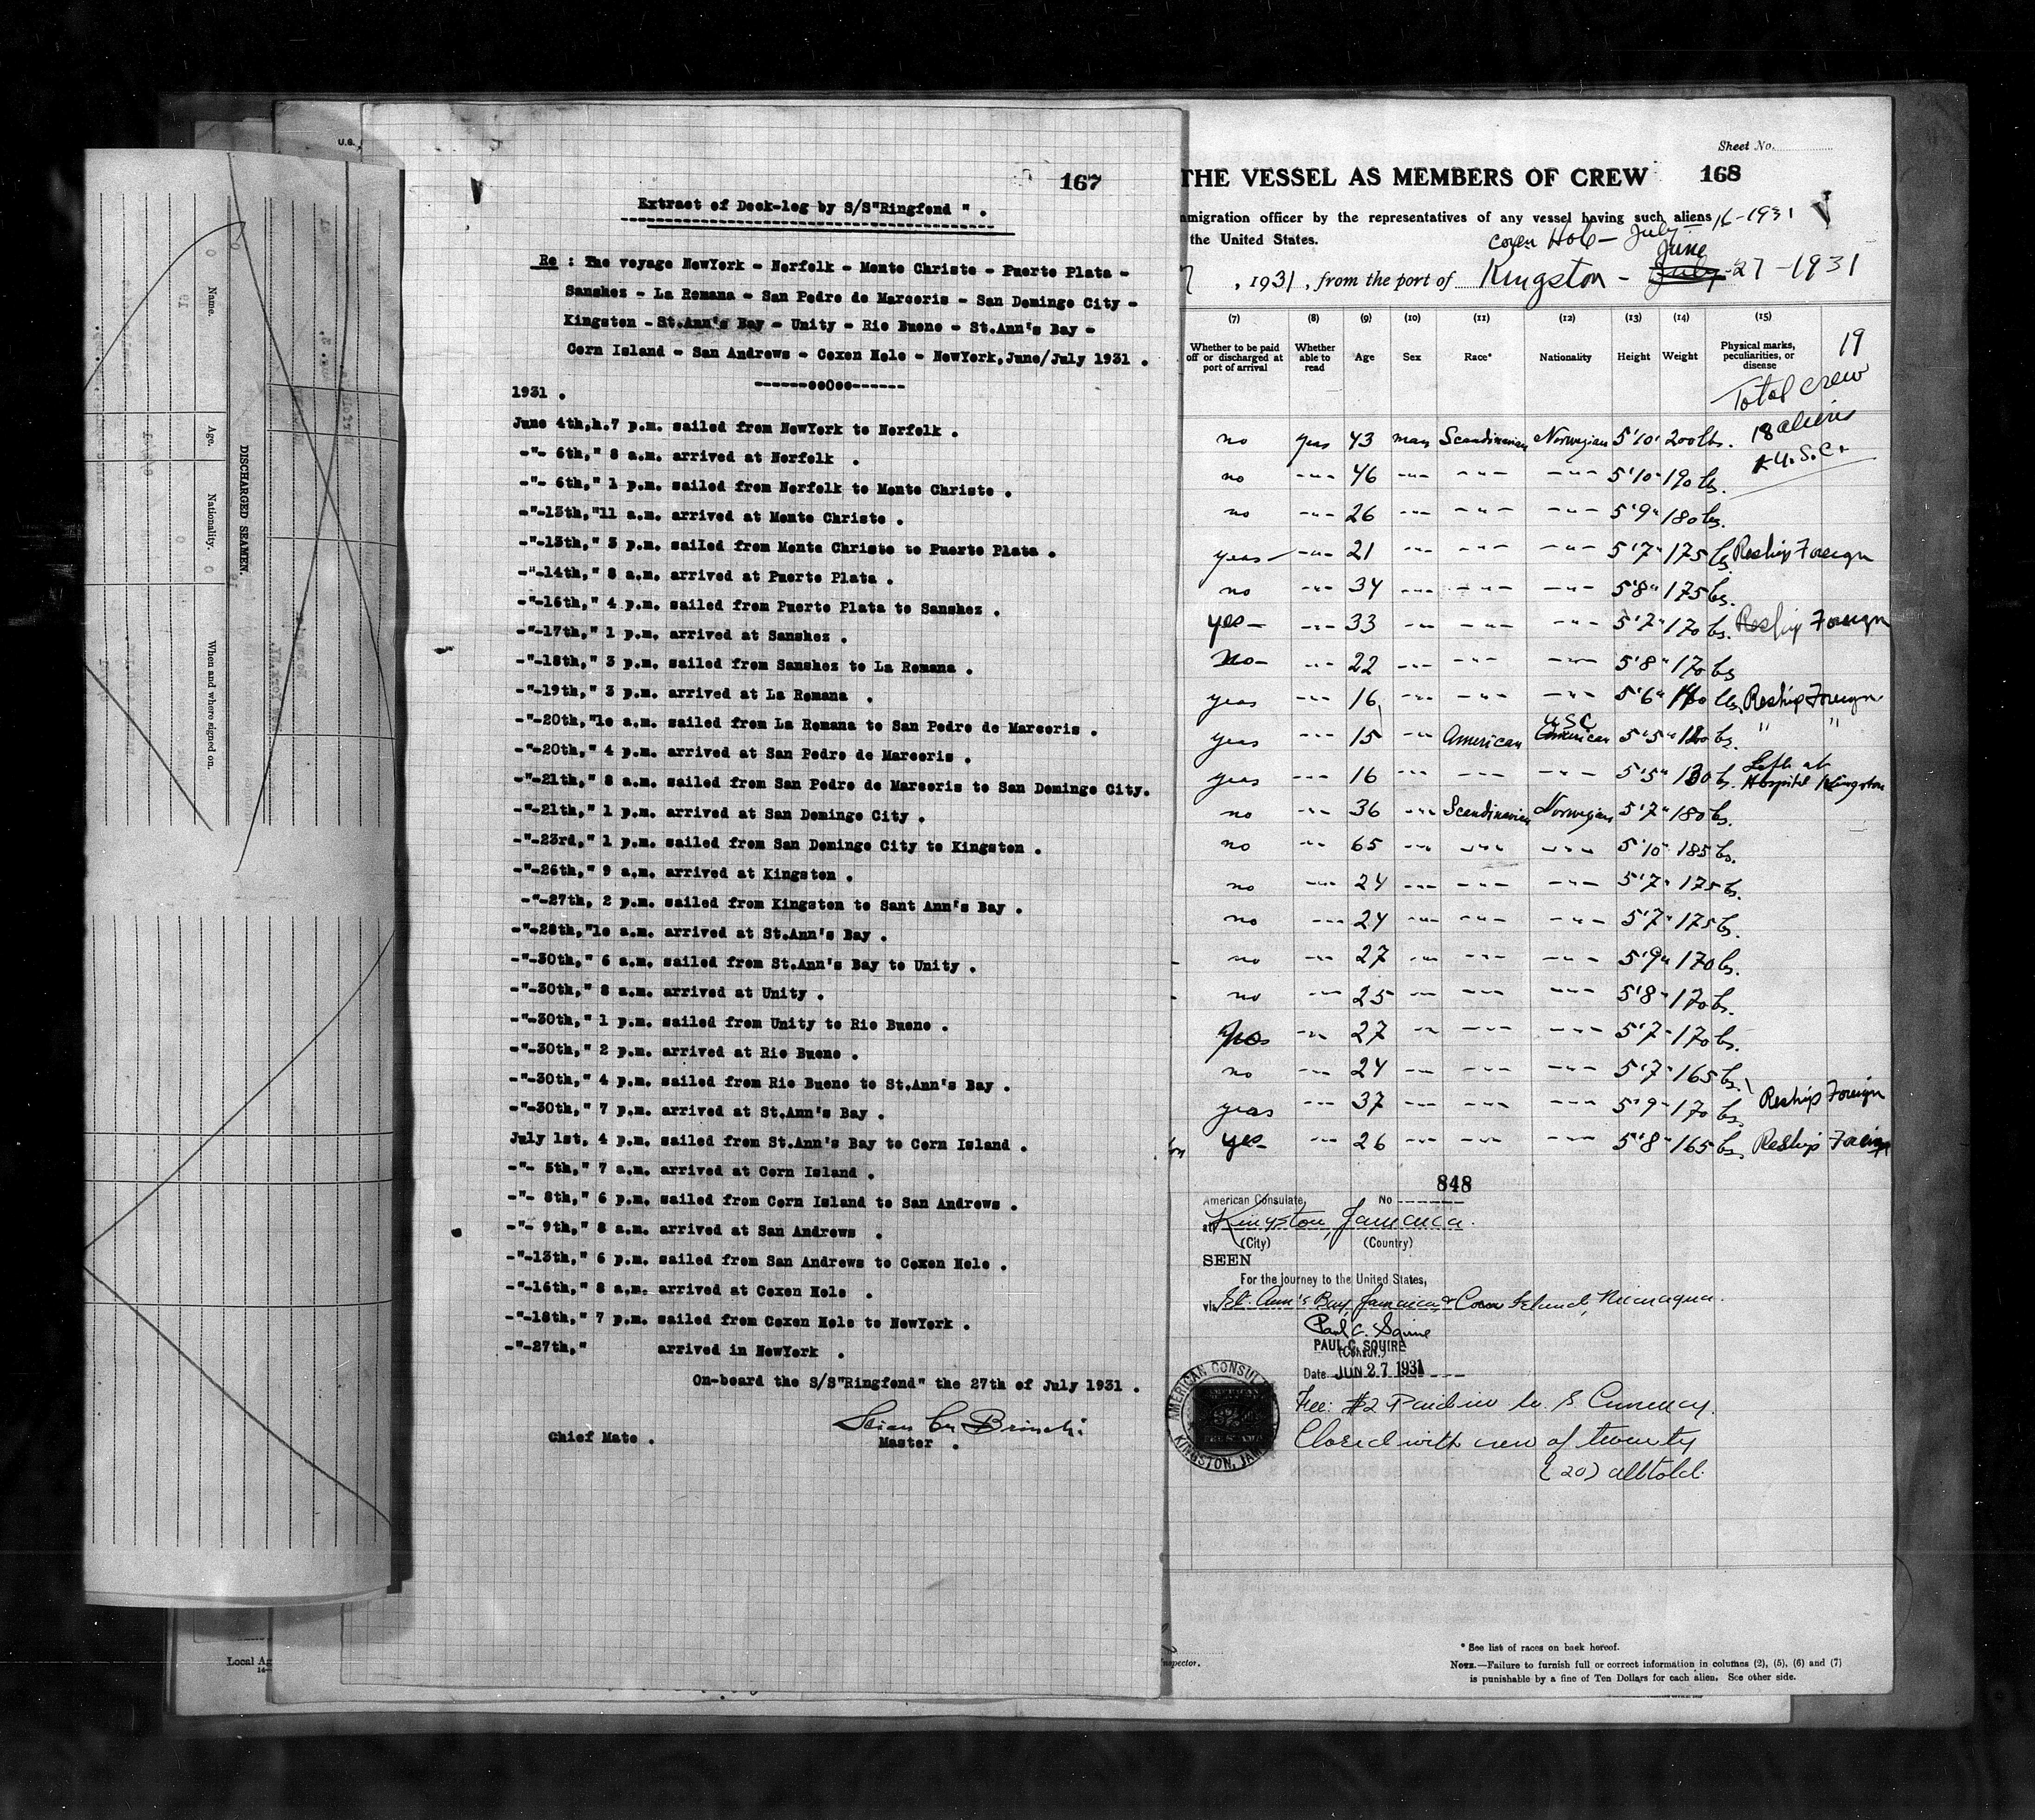 U.S.
167
Extract of Deck-log by S/S"Ringfond " .
Re : The voyage NewYork - Norfolk - Monte Christo - Puerto Plata -
Sanshez - La Romana - San Pedro de Marcoris - San Domingo City -
Kingston - St.Ann's Bay - Unity - Rio Bueno - St.Ann's Bay -
Corn Island - San Andrews - Coxen Hole - NewYork,June/July 1931 .
------ooOoo------
1931 .
June 4th,h.7 p.m. sailed from NewYork to Norfolk .
-"- 6th," 8 a.m. arrived at Norfolk .
-"- 6th," 1 p.m. sailed from Norfolk to Monte Christo .
-"-13th,"11 a.m. arrived at Monte Christo .
-"-13th," 3 p.m. sailed from Monte Christo to Puerto Plata .
-"-14th," 8 a.m. arrived at Puerto Plata .
-"-16th," 4 p.m. sailed from Puerto Plata to Sanshez .
-"-17th," 1 p.m. arrived at Sanshez .
-"-18th," 3 p.m. sailed from Sanshez to La Romana .
-"-19th," 3 p.m. arrived at La Romana .
-"-20th,"1o a.m. sailed from La Romana to San Pedro de Marcoris .
-"-20th," 4 p.m. arrived at San Pedro de Marcoris .
-"-21th," 8 a.m. sailed from San Pedro de Marcoris to San Domingo City.
-"-21th," 1 p.m. arrived at San Domingo City .
-"-23rd," 1 p.m. sailed from San Domingo City to Kingston .
-"-26th," 9 a.m. arrived at Kingston .
-"-27th, 2 p.m. sailed from Kingston to Sant Ann's Bay .
-"-28th,"1o a.m. arrived at St.Ann's Bay .
-"-30th," 6 a.m. sailed from St.Ann's Bay to Unity .
-"-30th," 8 a.m. arrived at Unity .
-"-30th," 1 p.m. sailed from Unity to Rio Bueno .
-"-30th," 2 p.m. arrived at Rio Bueno .
-"-30th," 4 p.m. sailed from Rio Bueno to St.Ann's Bay .
-"-30th," 7 p.m. arrived at St.Ann's Bay .
July 1st, 4 p.m. sailed from St.Ann's Bay to Corn Island .
-"- 5th," 7 a.m. arrived at Corn Island .
-"- 8th," 6 p.m. sailed from Corn Island to San Andrews .
-"- 9th," 8 a.m. arrived at San Andrews .
-"-13th," 6 p.m. sailed from San Andrews to Coxen Hole .
-"-16th," 8 a.m. arrived at Coxen Hole .
-"-18th," 7 p.m. sailed from Coxen Hole to NewYork .
-"-27th," arrived in NewYork .
On-board the S/S"Ringfond" the 27th of July 1931 .
Chief Mate .
Master .
DISCHARGED SEAMEN.
Name.
Age.
Nationality.
When and where signed on.
Local Ag
Sheet No.
THE VESSEL AS MEMBERS OF CREW 168
mmigration officer by the representatives of any vessel having such aliens
the United States.
Coxen Hole - July 16-1931
June
, 1931, from the port of Kingston - July 27-1931
(7) (8) (9) (10) (11) (12) (13) (14) (15)
Whether to be paid off or discharged at port of arrival
Whether able to read
Age
Sex
Race*
Nationality
Height
Weight
Physical marks, peculiarities, or disease
19
Total crew
18 aliens
1 U.S.C.
no yeas 43 man Scandinavian Norwegian 5'10" 200 lbs.
no --- 46 --- --- --- 5'10" 190 lbs.
no --- 26 --- --- --- 5'9" 180 lbs.
yeas --- 21 --- --- --- 5'7" 175 lbs. Reship Foreign
no --- 34 --- --- --- 5'8" 175 lbs.
yes --- 33 --- --- --- 5'7" 170 lbs. Reship Foreign
No --- 22 --- --- --- 5'8" 170 lbs
yeas --- 16 --- --- --- 5'6" 160 lbs. Reship Foreign
USC
yeas --- 15 --- American American 5'5" 120 lbs. " "
yeas --- 16 --- --- --- 5'5" 130 lbs. Left at Hospital Kingston
no --- 36 --- Scandinavian Norwegian 5'7" 180 lbs.
no --- 65 --- --- --- 5'10" 185 lbs.
no --- 24 --- --- --- 5'7" 175 lbs.
no --- 24 --- --- --- 5'7" 175 lbs.
no --- 27 --- --- --- 5'9" 170 lbs.
no --- 25 --- --- --- 5'8" 170 lbs.
no --- 27 --- --- --- 5'7" 170 lbs.
no --- 24 --- --- --- 5'7" 165 lbs.
yeas --- 37 --- --- --- 5'9" 170 lbs. Reship Foreign
yes --- 26 --- --- --- 5'8" 165 lbs. Reship Foreign
848
American Consulate, No
at Kingston, Jamaica.
(City) (Country)
SEEN
For the journey to the United States,
via St. Ann's Bay, Jamaica & Corn Island, Nicaragua.
Paul C. Squire
PAUL C. SQUIRE
(Consul.)
Date JUN 27 1931
AMERICAN CONSULATE
KINGSTON, JAMAICA
Fee: $2 Paid in U. S Currency.
Closed with crew of twenty
(20) all told.
nspector.
* See list of races on back hereof.
NOTE.—Failure to furnish full or correct information in columns (2), (5), (6) and (7)
is punishable by a fine of Ten Dollars for each alien. See other side.